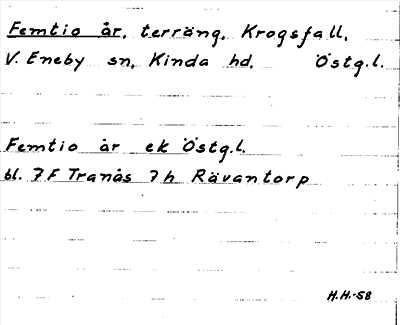 Femtio år, terräng, Krogsfall,
V. Eneby sn, Kinda hd, Östg.l.
Femtio år ek Östg.l.
bl. 7F Tranås 7h Rävantorp
H.H.-58